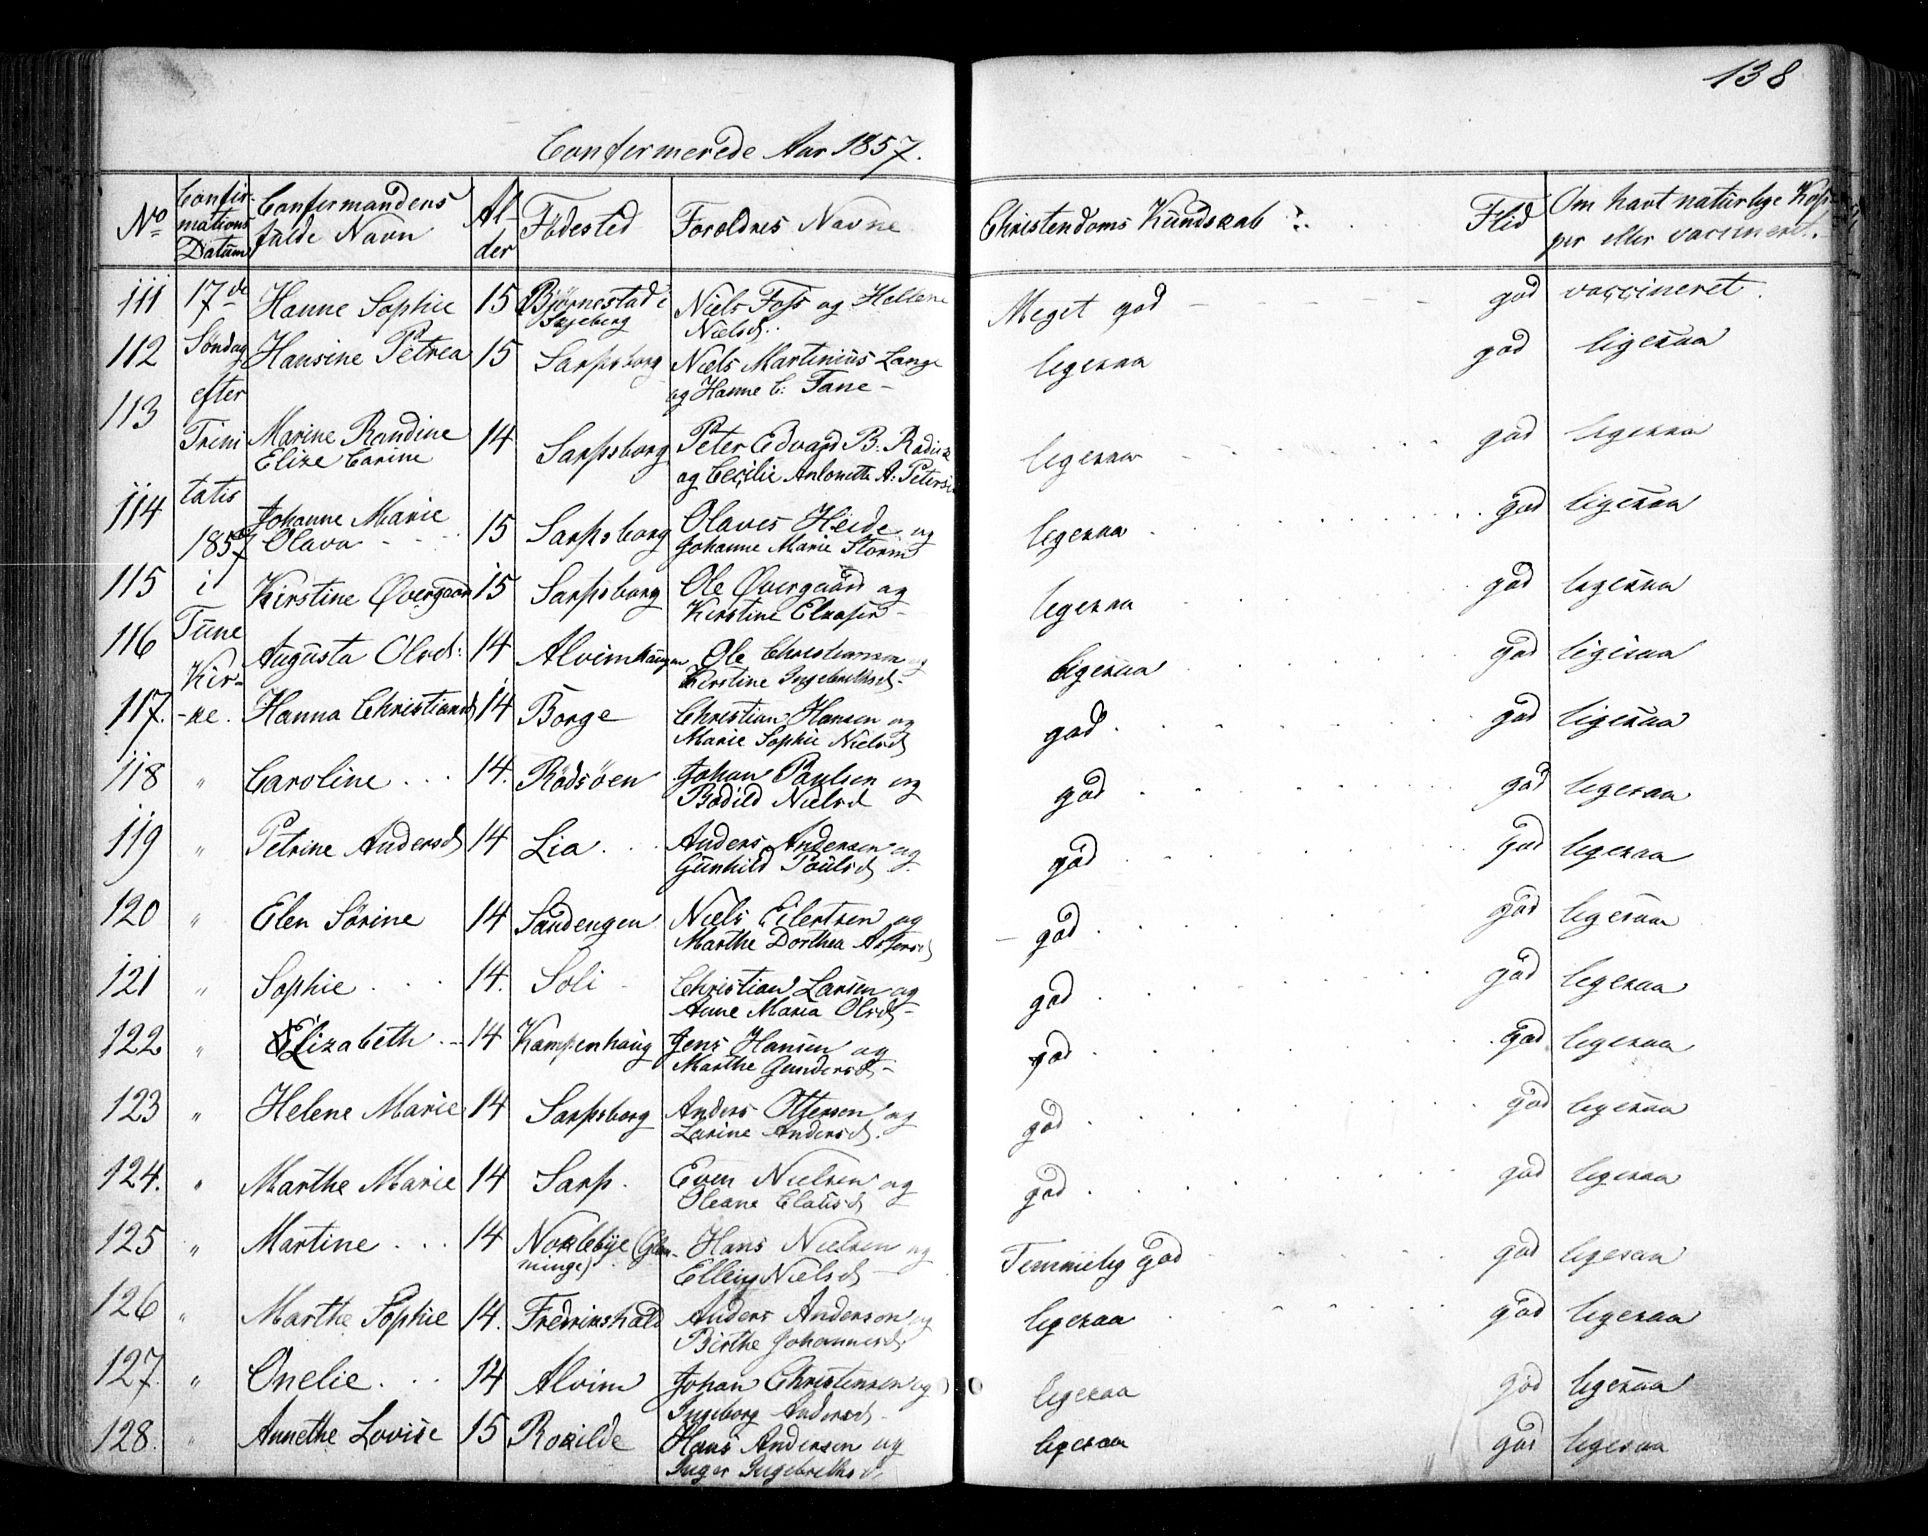 138
Confermerede Aar 1857.
No
Confir-
mations
Datum
Confermandens
fulde Navn
Al-
der
Födested
Foreldres Navne
Christendoms Kundskab
Flid
Om havt naturlige Kop-
per eller vaccineret.
111 17de Hanne Sophie 15 Bjørnestad i Niels Foss og Hellene Meget god god vaccineret.
Skjeberg Nielsd.
112 Søndag Hansine Petrea 15 Sarpsborg Niels Martinius Lange ligesaa god ligesaa
efter og Hanne C: Tane
113 Trini Marine Randine 14 Sarpsborg Peter Edvard B. ligesaa god ligesaa
Elize Carine og Cecilie Antonette A: Peters
114 tatis Johanne Marie 15 Sarpsborg Olaves Heide og ligesaa god ligesaa
1857 Olava Johanne Marie Storm
115 i Kirstine Øvergaard 15 Sarpsborg Ole Øvergaard og ligesaa god ligesaa
Tune Kirstine
116 Augusta Olsd: 14 Alvimhaugen Ole Christiansen og ligesaa god ligesaa
Kir- Kirstine Ingebrethsd
117. -ke. Hanna Christiansd 14 Borge Christian Hansen og god god ligesaa
Marie Sophie Nielsd
118 " Caroline 14. Rödsöen Johan Paulsen og god god ligesaa
Bodild Nielsd
119 " Petrine Andersd 14 Lia Anders Andersen og god god ligesaa
Gunhild Poulsd
120 " Elen Sörine 14 Sandengen Niels Eilertsen og god god ligesaa
Marthe Dorthea
121 " Sophie 14. Soli Christian Larsen og god god ligesaa
Anne Maria Olsd
122 " Elizabeth 14 Kampenhaug Jens Hansen og god god ligesaa
Marthe Gundersd
123 " Helene Marie 14 Sarpsborg Anders Ottersen og god god ligesaa
Larine Andersd.
124. " Marthe Marie 14 Sarp. Even Nielsen og god god ligesaa
Oleane Clausd
125 " Martine 14 Noklebye (Glem- Hans Nielsen og Temmelig God god ligesaa
minge) Elling Nielsd
126 " Marthe Sophie 14. Fredrikshald Anders Anderson og ligesaa god ligesaa
Birthe Johannesd.
127. " Onelie 14 Alvim Johan Christensen og ligesaa god ligesaa
Ingeborg Andersd
128. " Annethe Lovise 15 Rokilde Hans Andersen og ligesaa god ligesaa
Inger Ingebrethsd